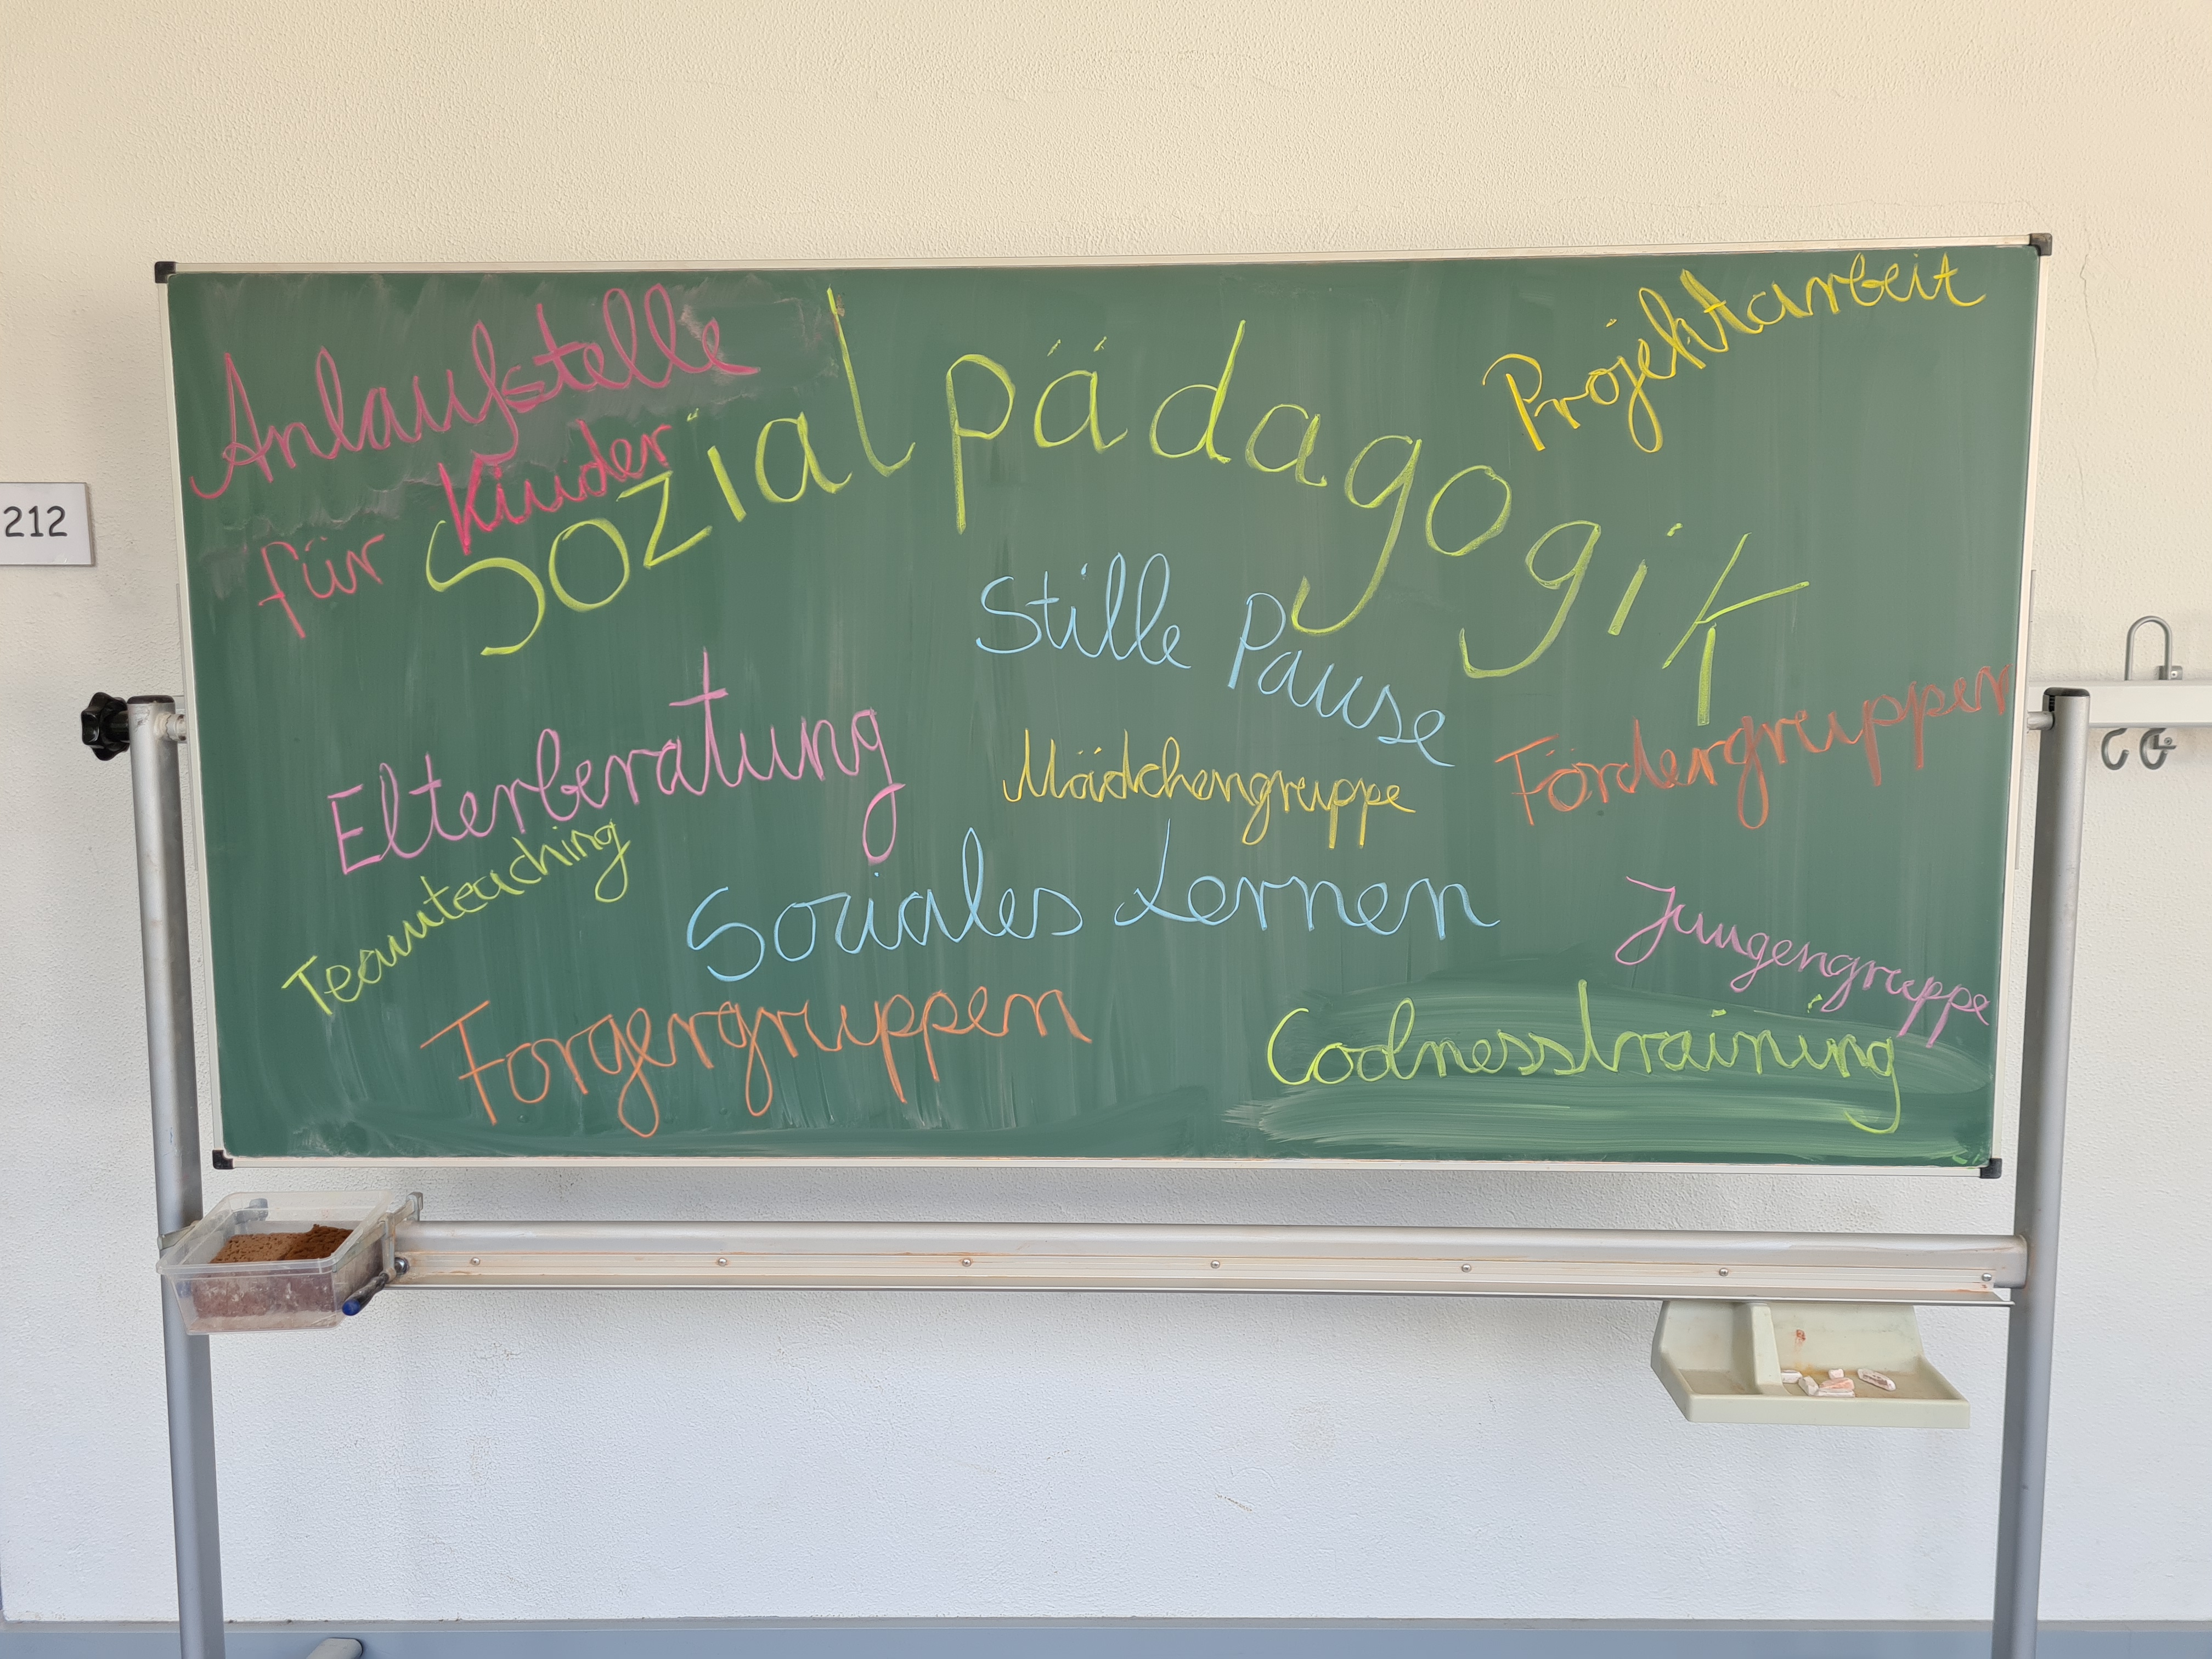 Anlaufstelle
für Kinder
Sozialpädagogik
Projektarbeit
Stille Pause
Elternberatung
Mädchengruppe
Fördergruppen
Teamteaching
Soziales Lernen
Jungengruppe
Forgergruppen
Coolnesstraining
212